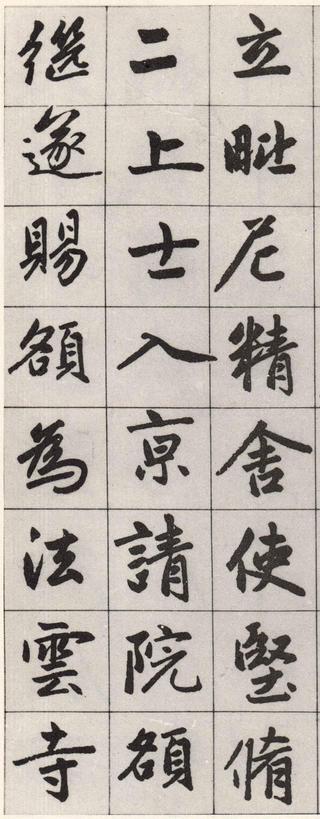 立毗尼精舍使堅脩
二上士入亰請院額
繼遂賜額為法雲寺